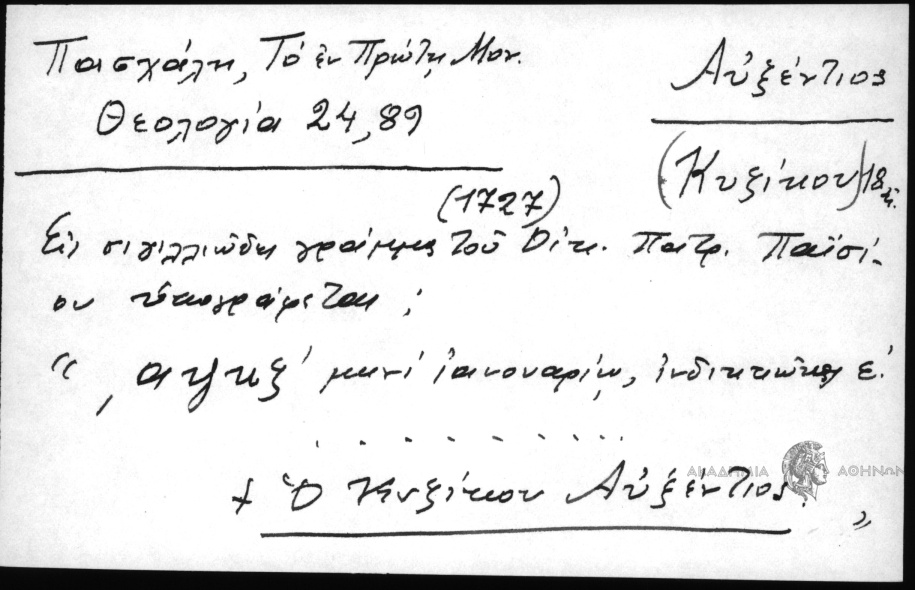 Πασχάλη, Τό ἐν Πρώτῃ Μον.
Θεολογία 24, 89
Αὐξέντιος
(Κυζίκου) 18
(1727)
Εἰς σιγιλλιῶδη γράμμα τοῦ Οἰκ. Πατρ. Παϊσί-
ου ὑπογράφεται ;
“ , αψκζ´ μηνί ἰανουαρίῳ, ἰνδικτιῶνος ε´.
. . . . . . . . . .
+ Ὁ Κυζίκου Αὐξέντιος. ”
ΑΚΑΔΗΜΙΑ ΑΘΗΝΩΝ